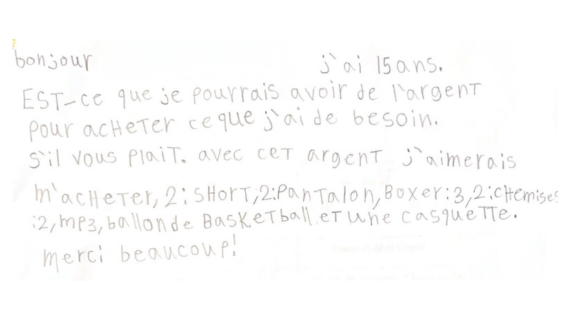 bonjour j'ai 15 ans.
EST-ce que je pourrais avoir de l'argenT
pour acHeTer ce que j'ai de besoin.
s'il vous plaiT. avec ceT argenT j'aimerais
m'acHeTer, 2: sHorT, 2: panTalon, Boxer: 3, 2: cHemises
:2, mp3, ballon de BasKeTball eT une casqueTTe.
merci beaucoup!